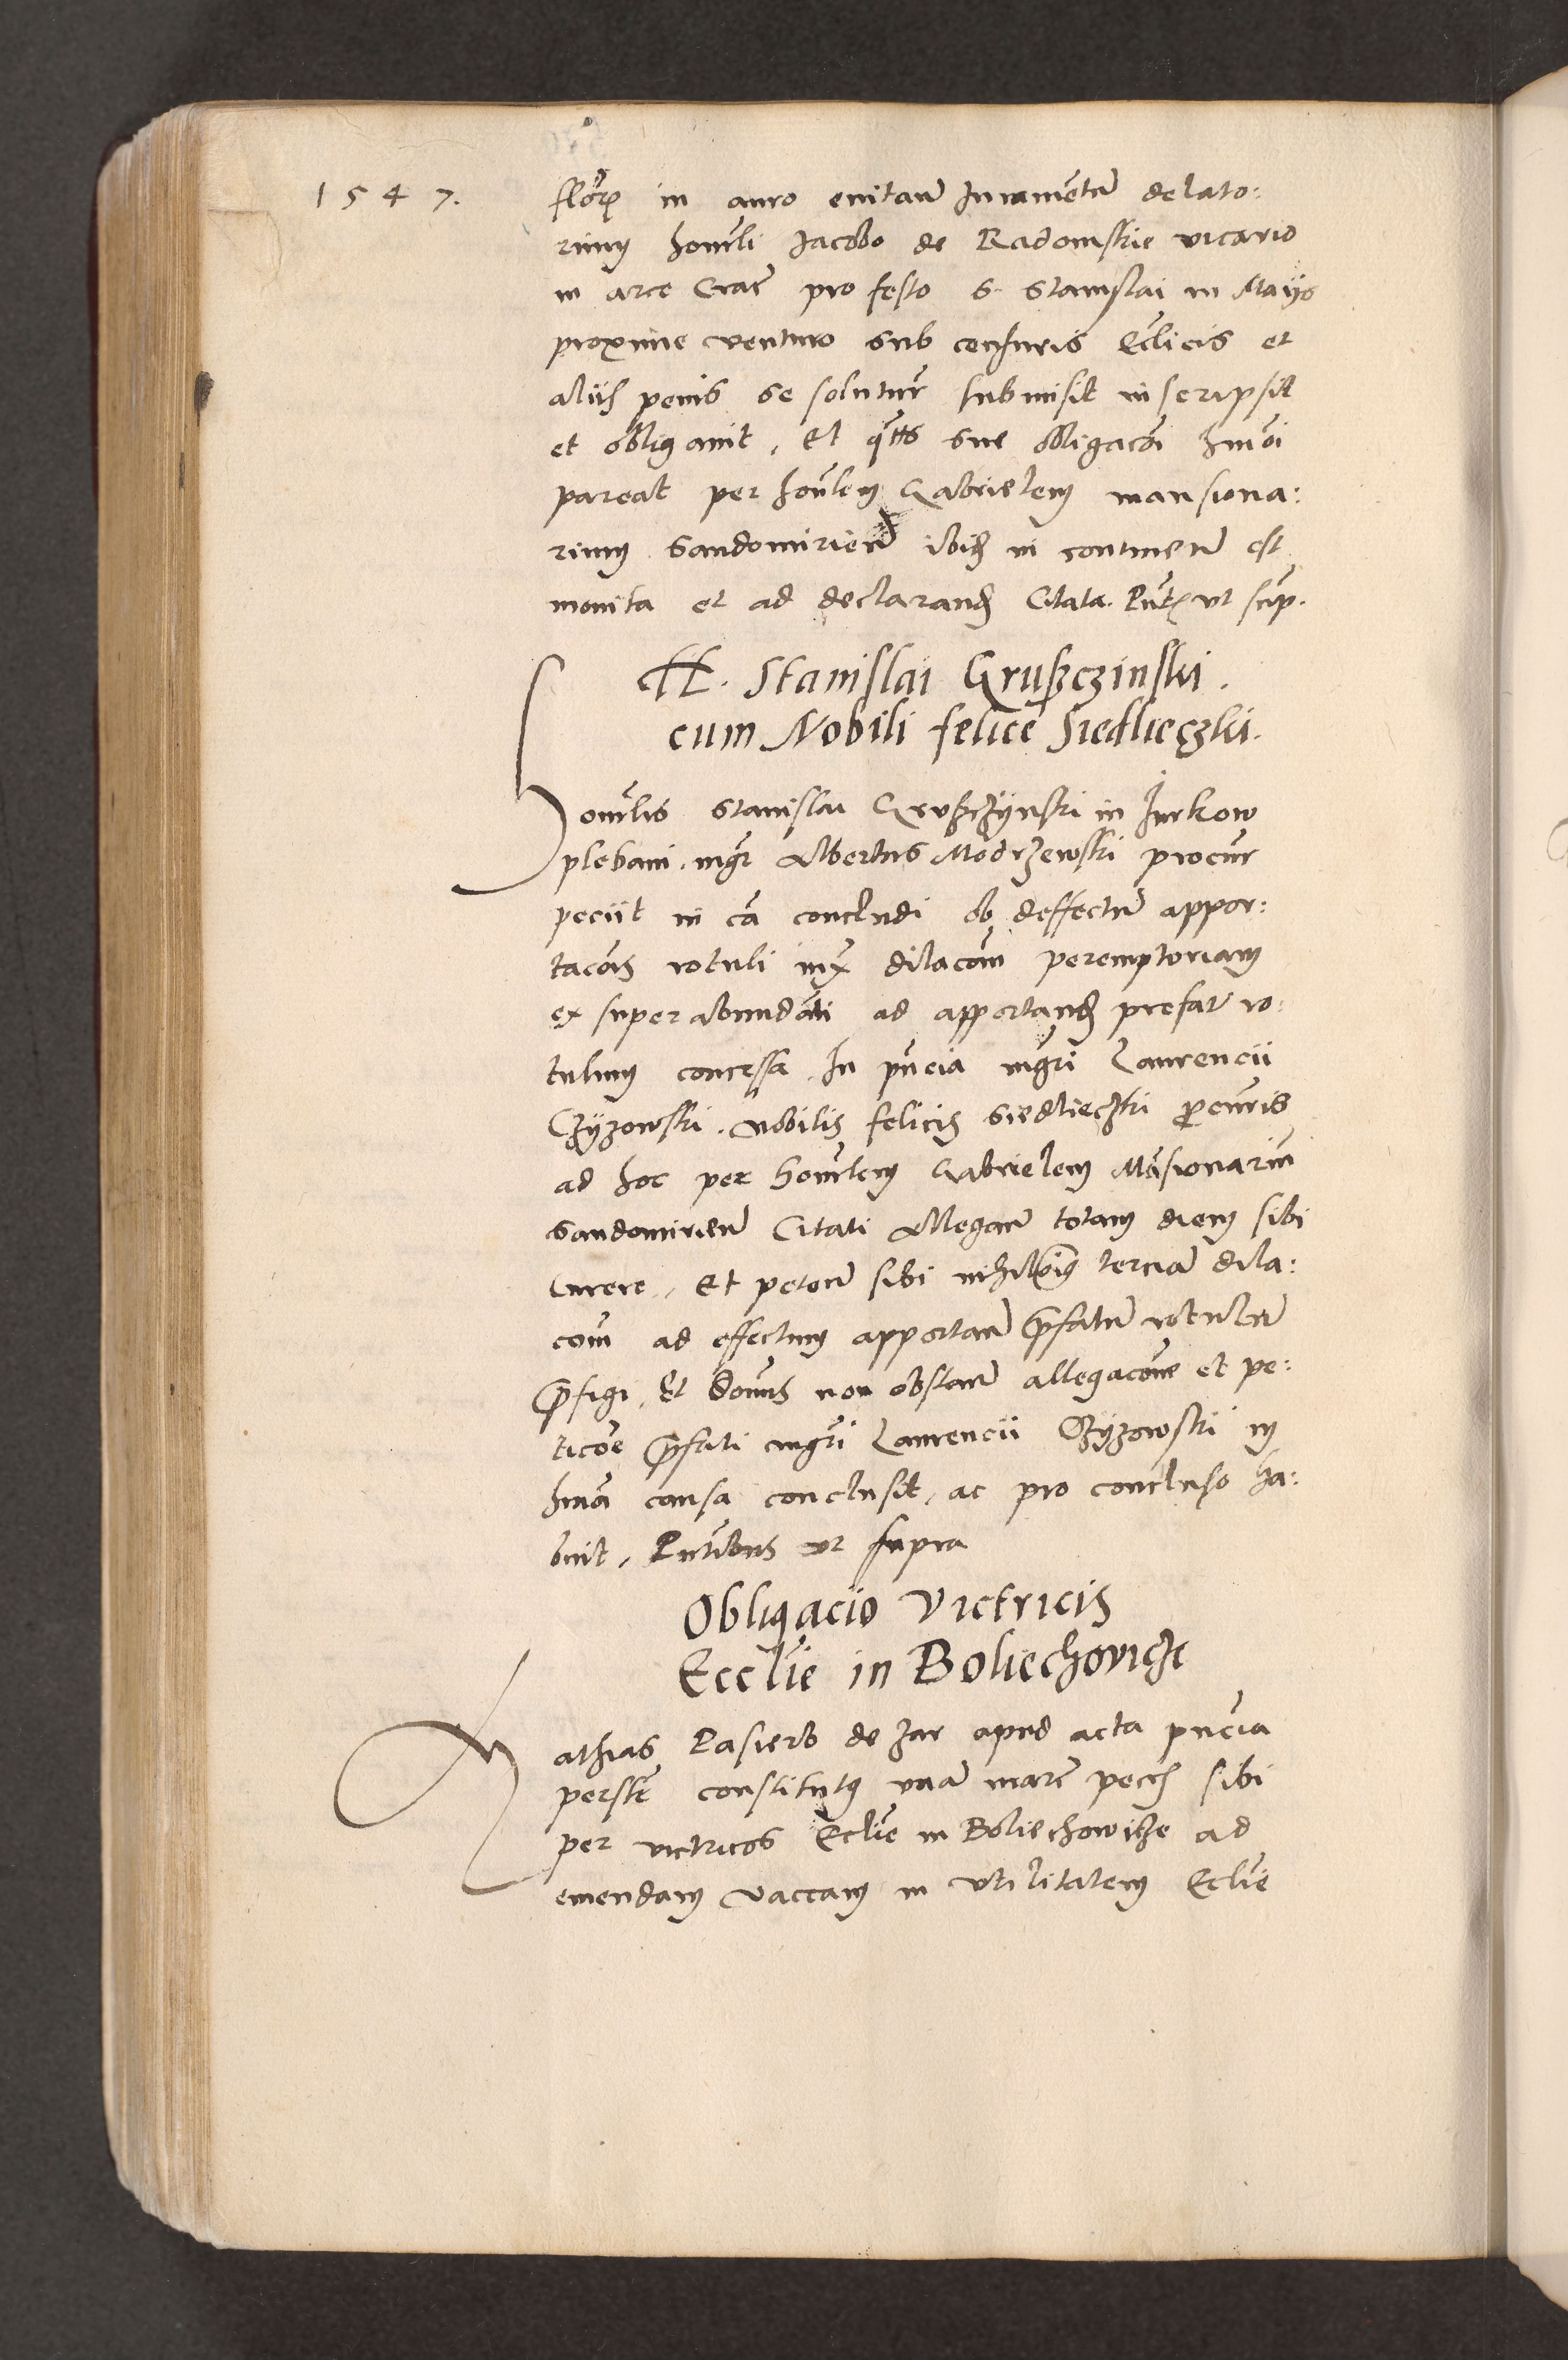 1547.
florꝫ in auro euitan̄ Iuramentū delato:
rium honorli Jacobo de Radomskie vicario
in arce Crac̄ pro festo S. Stanislai in Mayo
proxime venturo sub censuris Eclicis et
aliis penis se soluturū submisit inscripsit
et obligauit, Et q̄tts sue obligacōi hmōi
pareat per honrlem Gabrielem mansiona:
rium Sandomirien̄ ibidꝫ in continen̄ est
monita et ad declarandꝫ Citata. Pn̄tꝫ vt sup̄.
H. Stanislai Grusczinski.
cum Nobili felice Siedlieczki.
Honorlis Stanislai Grusczÿnski in Jurkow
plebani, mgr̄ Albertus Modrzewski procur̄
peciit in cā concludi ob deffectū appor:
tacōis rotuli iux̄ dilacōm peremptoriam
ex superabundāti ad apportandꝫ prefatū ro:
tulum concessā. In pn̄cia mgr̄i Laurencii
Czÿzowski. Nobilis felicis Siedlieczki procuris
ad hoc per honorlem Gabrielem Māsionariū
Sandomirien̄ Citati Allegan̄ totam diem sibi
Currere, Et peten̄ sibi nihilominus terciā dila:
com̄ ad effectum apportan̄ prefatū rotulū
prefigi, Et Domīs non obstan̄ allegacōne et pe:
ticōe prefati mgr̄i Laurencii Czÿzowski in
hmōi causa conclusit, ac pro concluso ha:
buit, Pn̄tibus vt supra
Obligacio Victricis
Ecclie in Boliechovicze
Mathias Pasierb de Zar apud acta pn̄cia
person̄r constitutus vnā marc̄ pecc̄ sibi
per victricos Eclie in Boliechowicze ad
emendam vaccam in vtilitatem Eclie